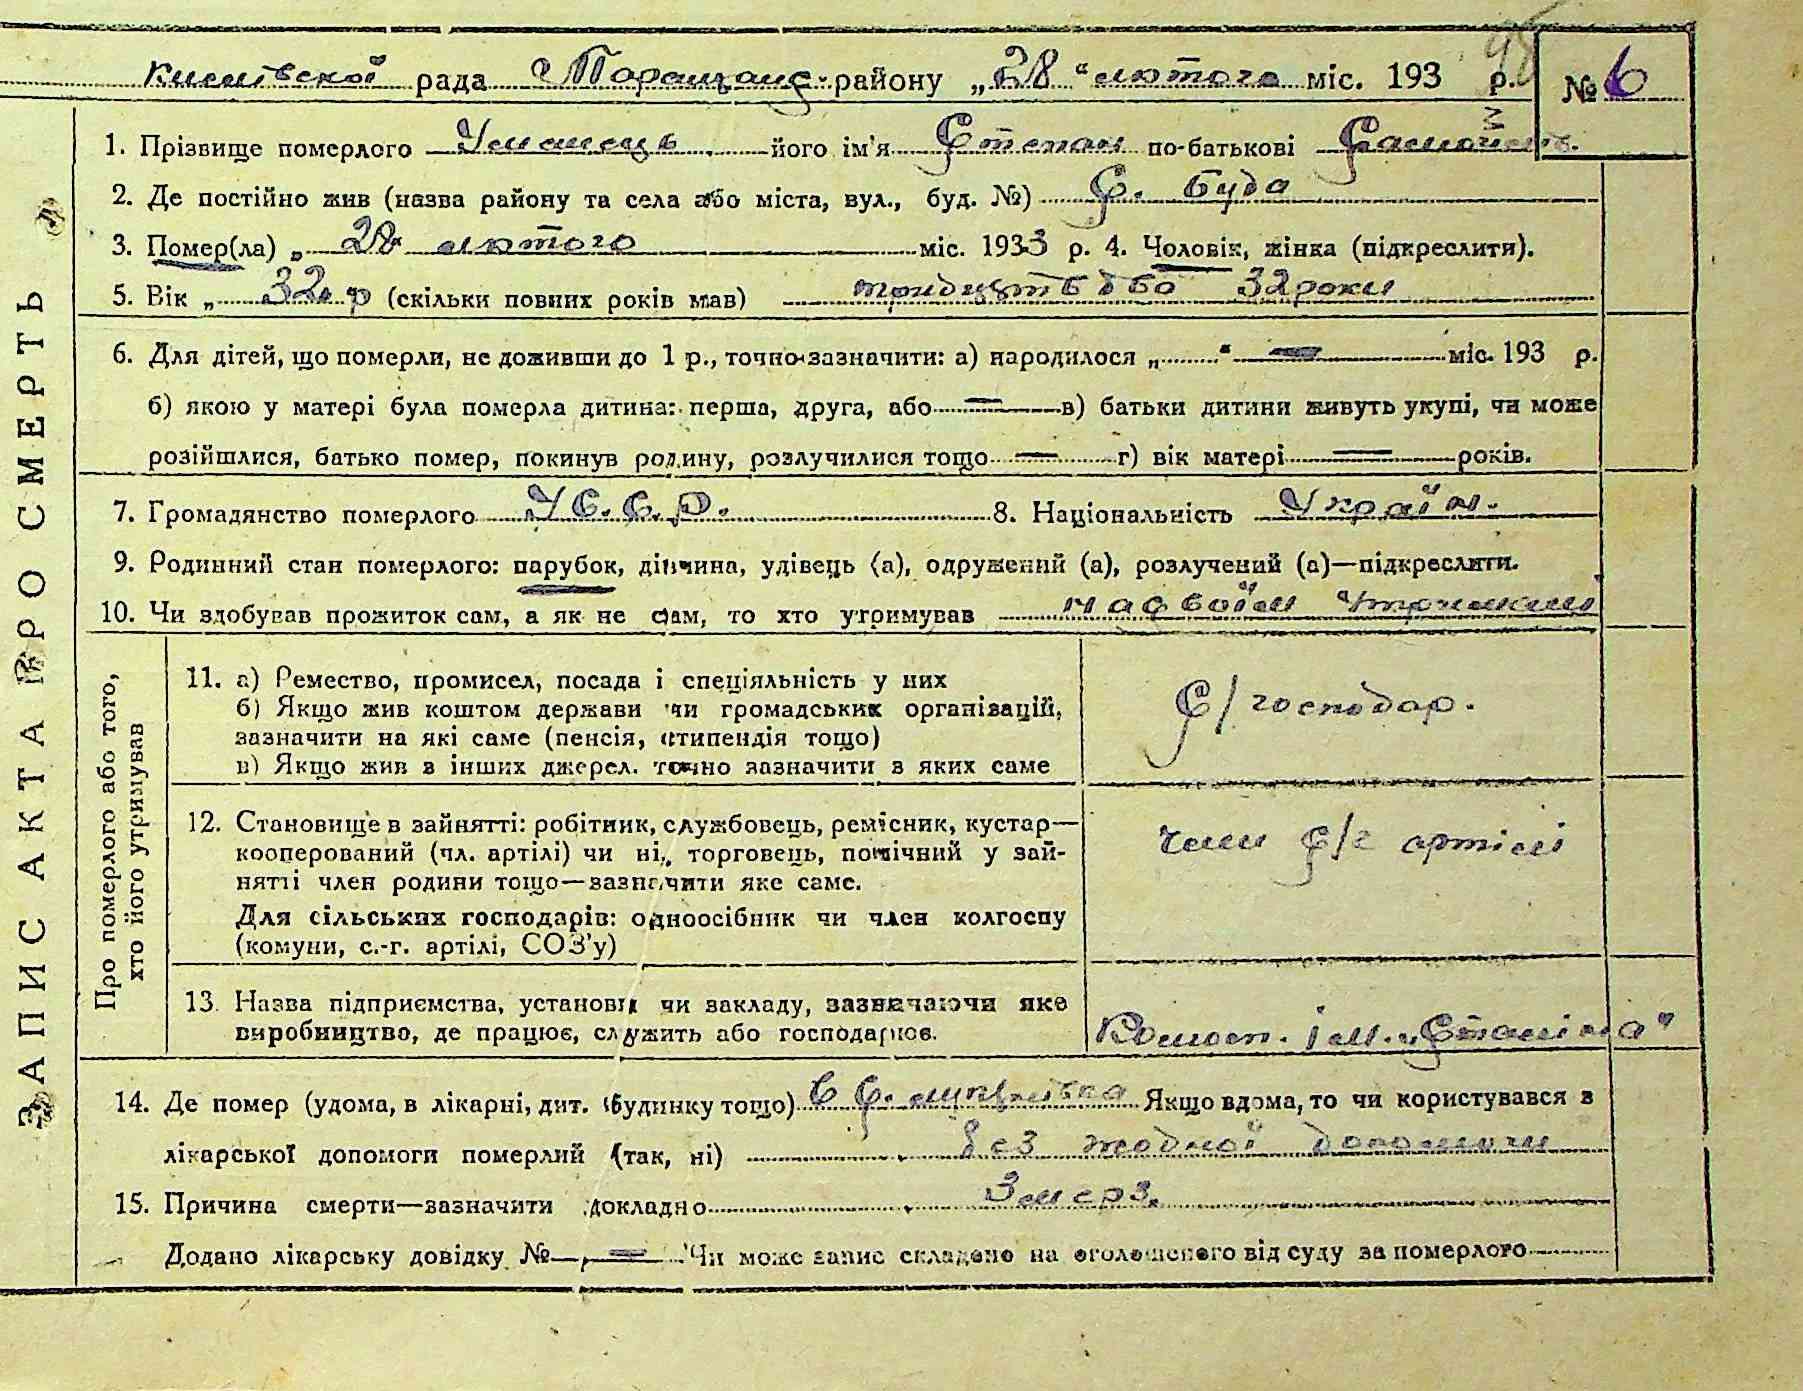 рада Таращанс. району „28“ лютого міс. 193 р. № 6
1. Прізвище померлого Уманець його ім'я Степан по-батькові
2. Де постійно жив (назва району та села або міста, вул., буд. №) с. Буда
3. Помер(ла) „ 28 лютого міс. 1933 р. 4. Чоловік, жінка (підкреслити).
5. Вік „ 32 р (скільки повних років мав) тридцять два 32 роки
6. Для дітей, що померли, не доживши до 1 р., точно зазначити: а) народилося „ “ — міс. 193 р.
б) якою у матері була померла дитина: перша, друга, або — в) батьки дитини живуть укупі, чи може
розійшлися, батько помер, покинув родину, розлучилися тощо — г) вік матері — років.
7. Громадянство померлого У С. С. Р. 8. Національність Україн.
9. Родинний стан померлого: парубок, дівчина, удівець (а), одружений (а), розлучений (а)—підкреслити.
10. Чи здобував прожиток сам, а як не сам, то хто утримував на своїм
ЗАПИС АКТА ПРО СМЕРТЬ
Про померлого або того,
хто його утримував
11. а) Ремество, промисел, посада і спеціяльність у них
б) Якщо жив коштом держави чи громадських організацій,
зазначити на які саме (пенсія, стипендія тощо)
в) Якщо жив з інших джерел. точно зазначити з яких саме
С/господар.
12. Становище в зайнятті: робітник, службовець, ремісник, кустар—
кооперований (чл. артілі) чи ні, торговець, помічний у зай-
нятті член родини тощо—зазначити яке саме.
Для сільських господарів: одноосібник чи член колгоспу
(комуни, с.-г. артілі, СОЗ'у)
член с/г артілі
13. Назва підприємства, установи чи закладу, зазначаючи яке
виробництво, де працює, служить або господарює.
ім. „Сталіна”
14. Де помер (удома, в лікарні, дит. будинку тощо) в с. Якщо вдома, то чи користувався з
лікарської допомоги померлий (так, ні) без жодної допомочи
15. Причина смерти—зазначити докладно Змерз.
Додано лікарську довідку № — Чи може запис складено на оголошеного від суду за померлого